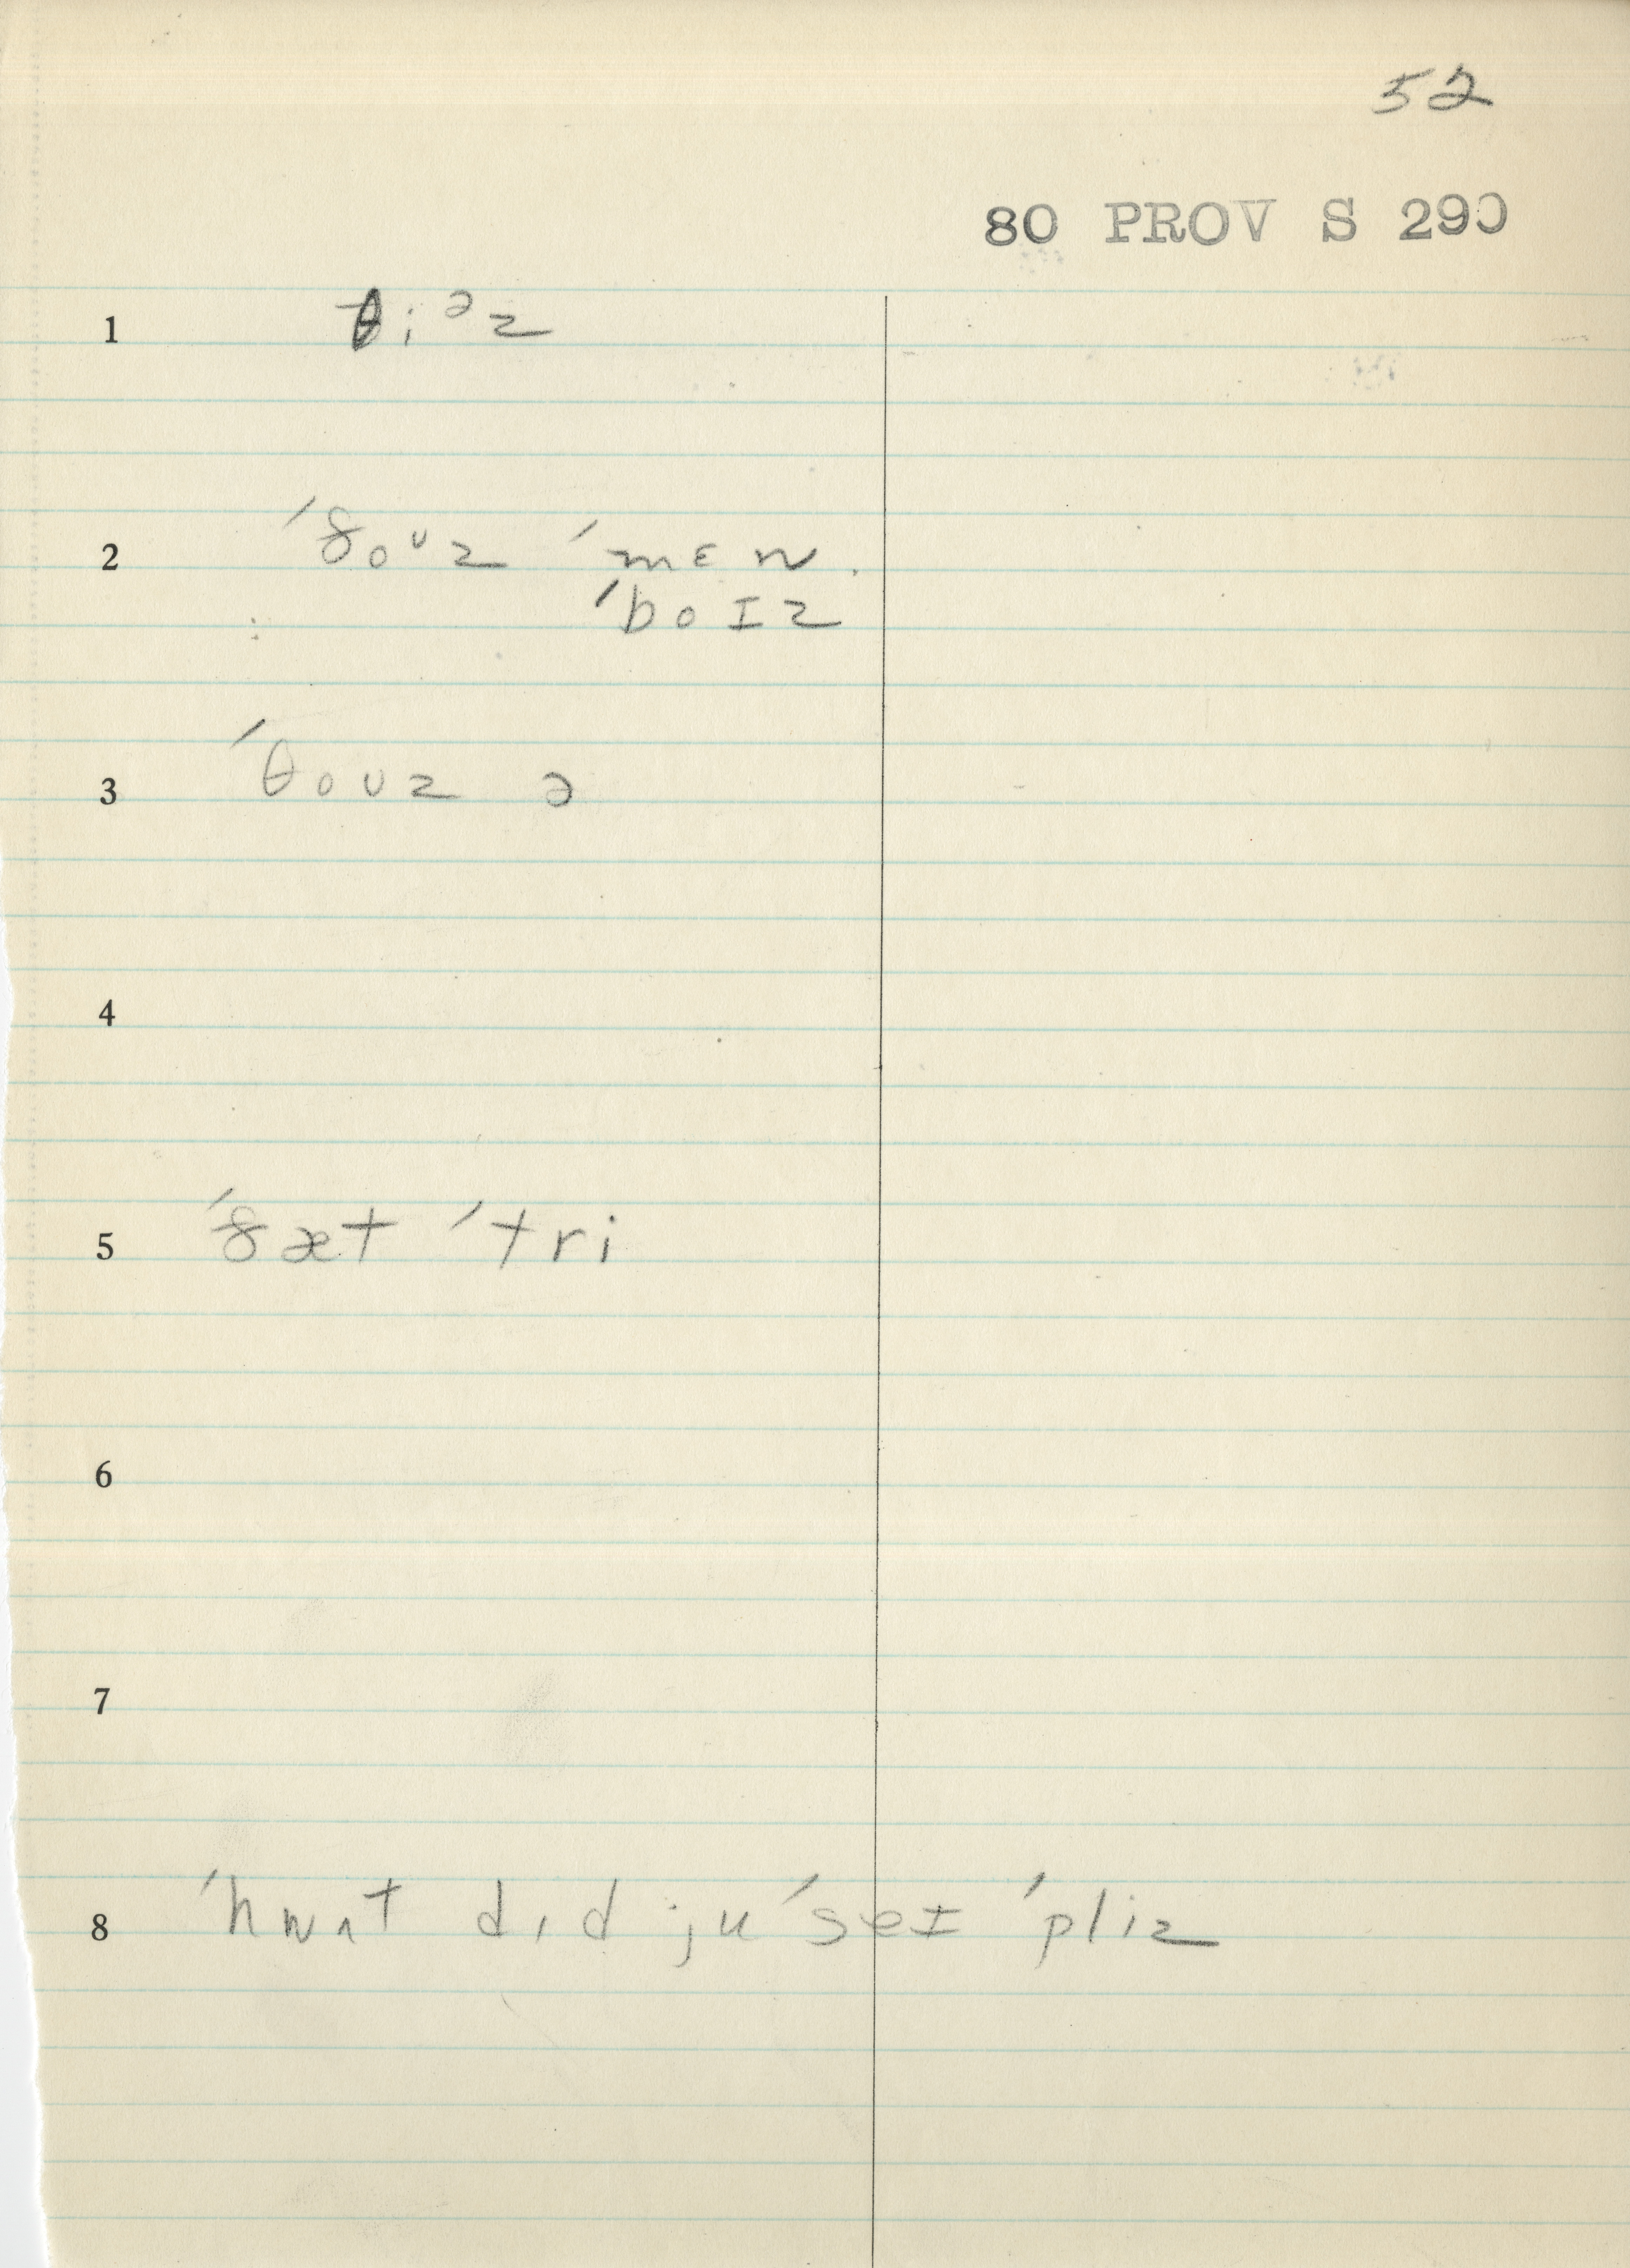 52
80 PROV S 290
1 θiᵊz
2 ˈðoᶷz ˈmɛn.
ˈboɪz
3 ˈθoʊz ə
4
5 ˈðæt ˈtri
6
7
8 ˈhwʌt dɪd ju ˈseɪ ˈpliz